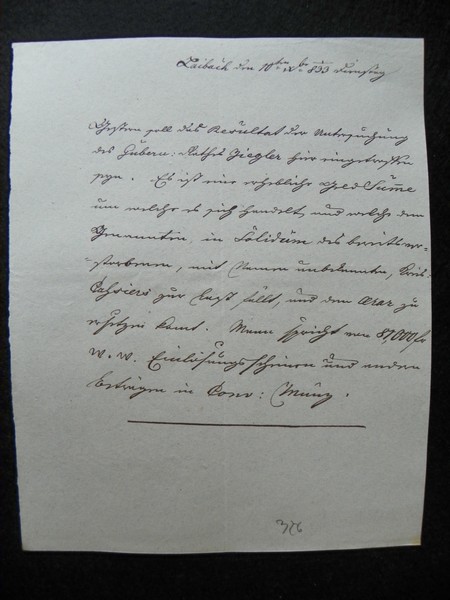 Laibach den 10ten Xbr 833 Dienstag
Gestern soll das Resultat der Untersuchung
des Gubern: Rathes Ziegler hier eingetroffen
seyn. Es ist eine erhebliche Geld Summe
um welche es sich handelt, und welche dem
Genannten, in Solidum des bereits ver-
storbenen, mit Namen unbekannten, Kreis
Cassiers zur Last fällt, und dem Ärar zu
ersetzen kömt. Mann spricht von 87,000 f
W. W. Einlösungsscheinen und andern
Beträgen in Conv: Münz.
326